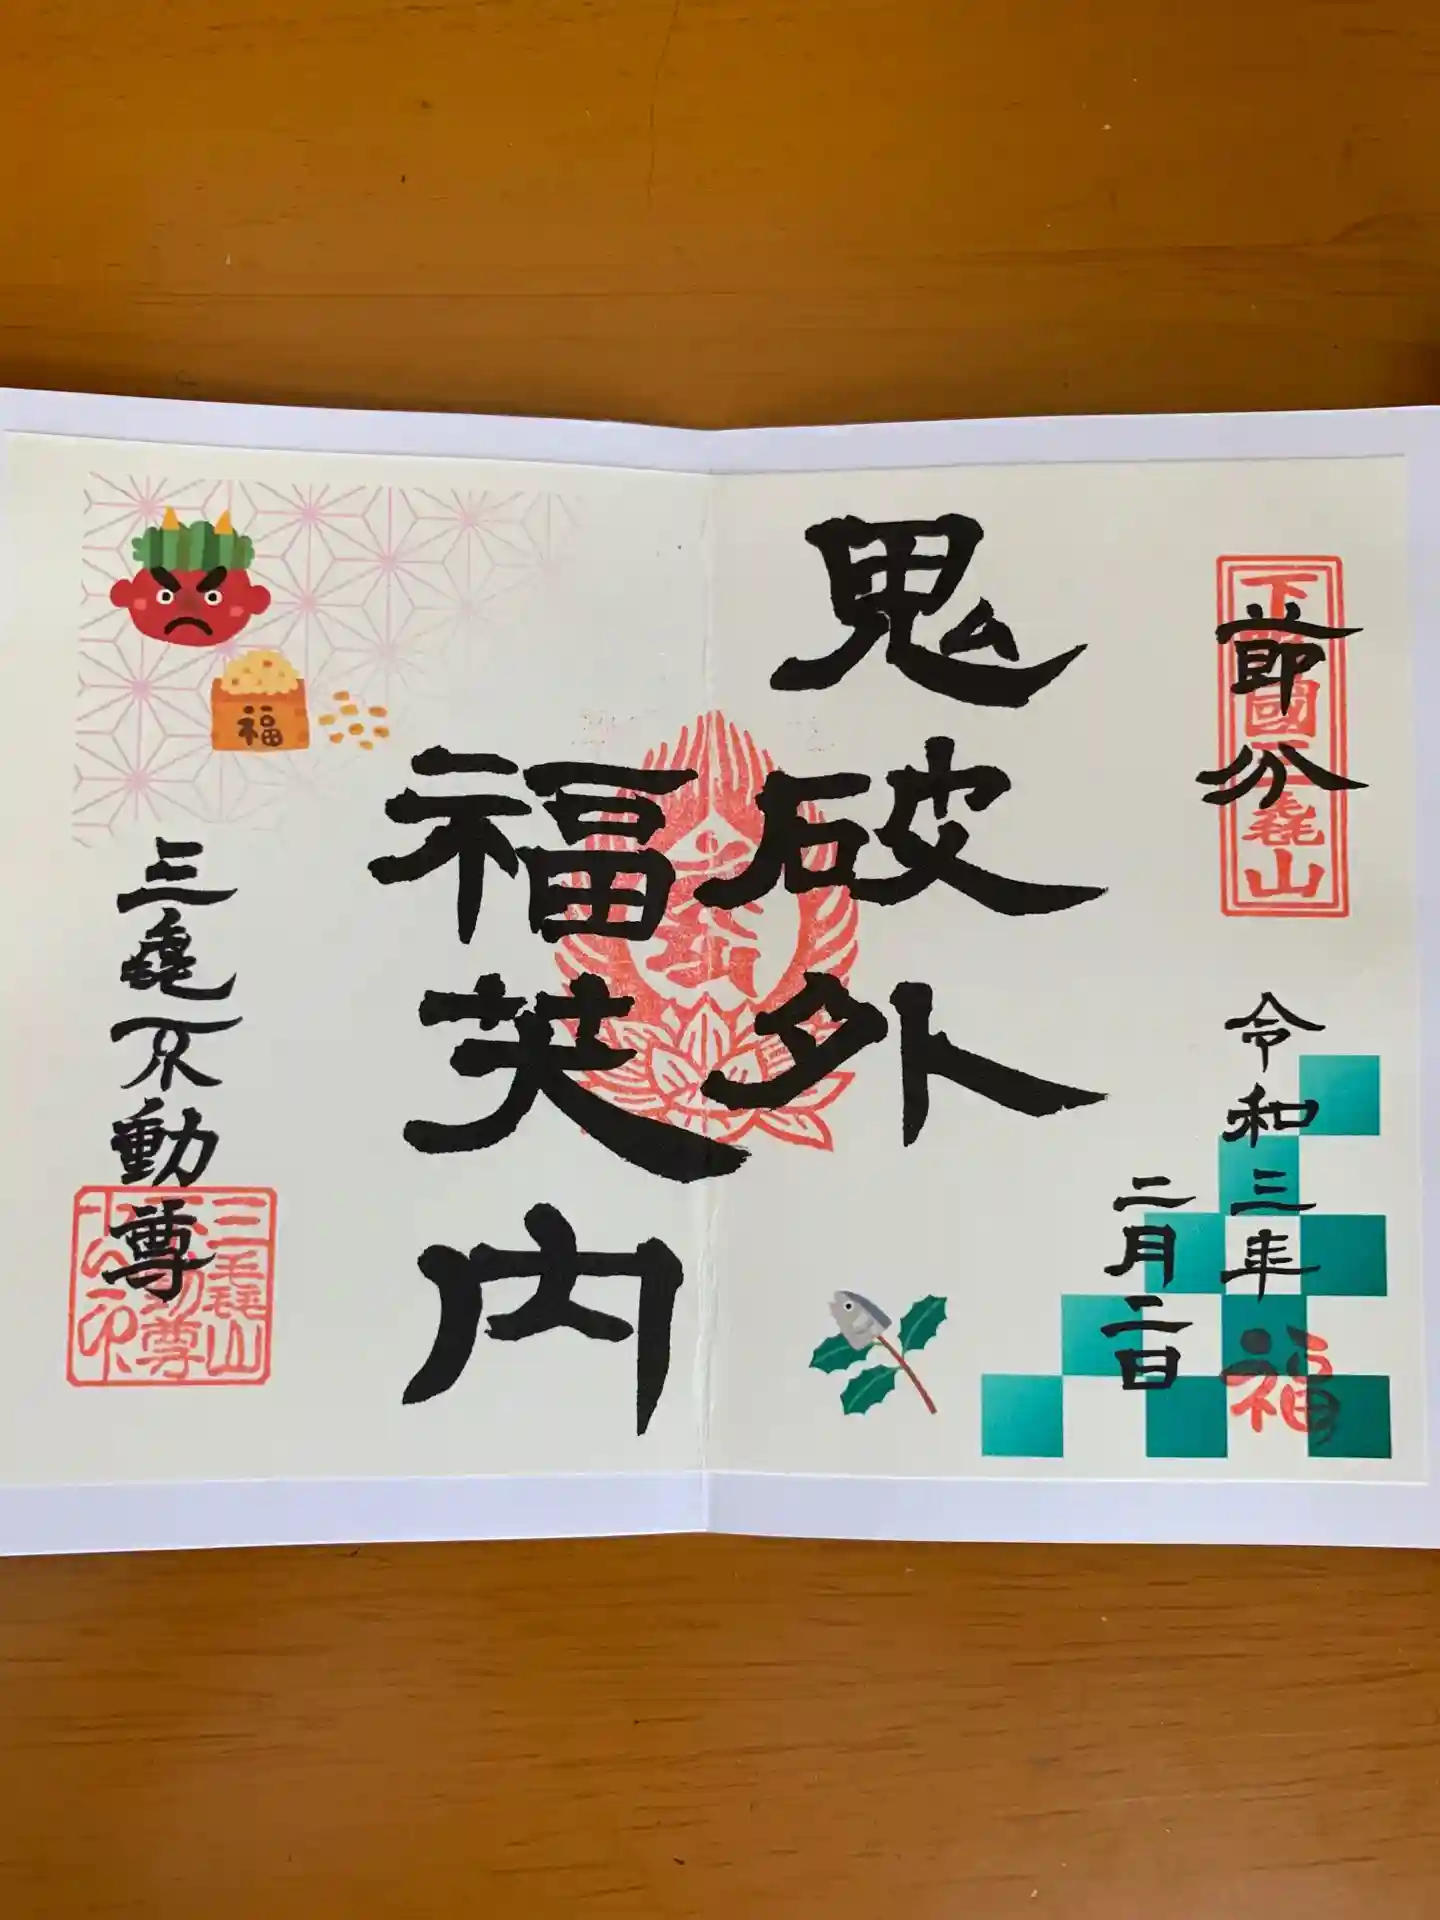 節分
下野國三毳山
令和三年
二月二日
福
鬼破外
福笑内
福
三毳不動尊
三毳山
不動尊